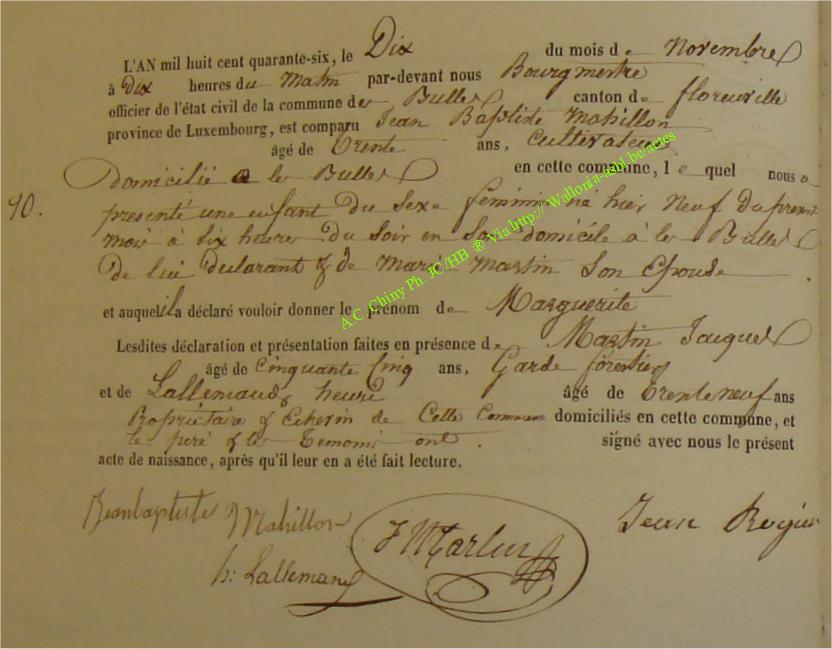 L'AN mil huit cent quarante-six, le Dix du mois de Novembre
à Dix heures du Matin par-devant nous Bourgmestre
officier de l'état civil de la commune de les Bulles canton de florenville
province de Luxembourg, est comparu Jean Baptiste Mahillon
âgé de Trente ans, Cultivateur
domicilié a les Bulles en cette commune, le quel nous a
90.
presenté une enfant du sexe feminin né hier Neuf du present
mois à six heures du Soir en son domicile à les Bulles
de lui dularant & de Marie Martin Son Epouse
et auquel il a déclaré vouloir donner le prénom de Marguerite
Lesdites déclaration et présentation faites en présence de Martin Jacques
âgé de Cinquante Cinq ans, Garde forestier
et de Lallemand henri âgé de Trente neuf ans
Propriétaire & Echevin de Cette Commune domiciliés en cette commune, et
le peré & les Temoins ont signé avec nous le présent
acte de naissance, après qu'il leur en a été fait lecture.
Jean baptiste Mahillon
J Martin
Jean Rogier
h: Lallemand
A.C. Chiny Ph. JC/HB ® Via http:// Wallonia-asbl.be/actes